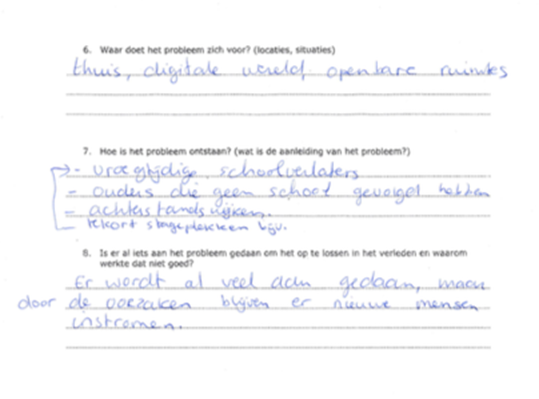 6. Waar doet het probleem zich voor? (locaties, situaties)
thuis, digitale wereld, openbare ruimtes
7. Hoe is het probleem ontstaan? (wat is de aanleiding van het probleem?)
- vroegtijdige schoolverlaters
- ouders die geen school gevolgd hebben
- achterstandswijken.
- tekort stageplekken bijv.
8. Is er al iets aan het probleem gedaan om het op te lossen in het verleden en waarom
werkte dat niet goed?
Er wordt al veel aan gedaan, maar
door de oorzaken blijven er nieuwe mensen
instromen.